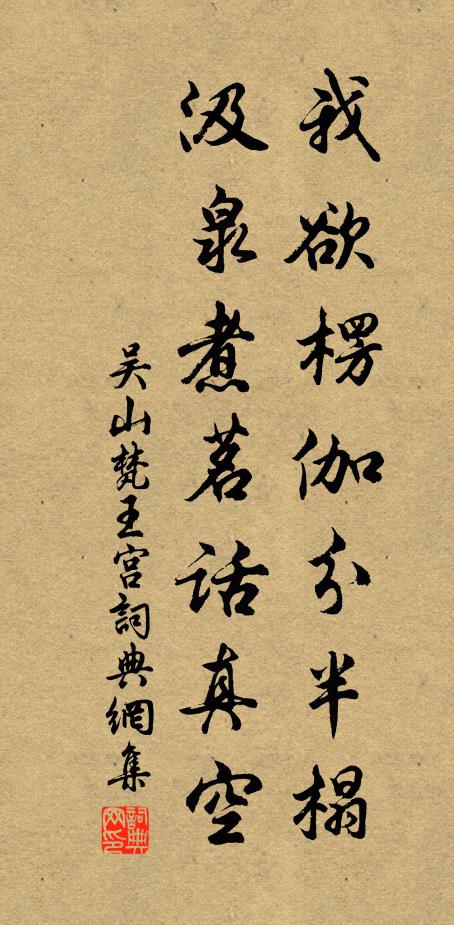 我欲楞伽分半榻
汲泉煮茗話真空
吴山梵王宫詞典網集
詞典网印